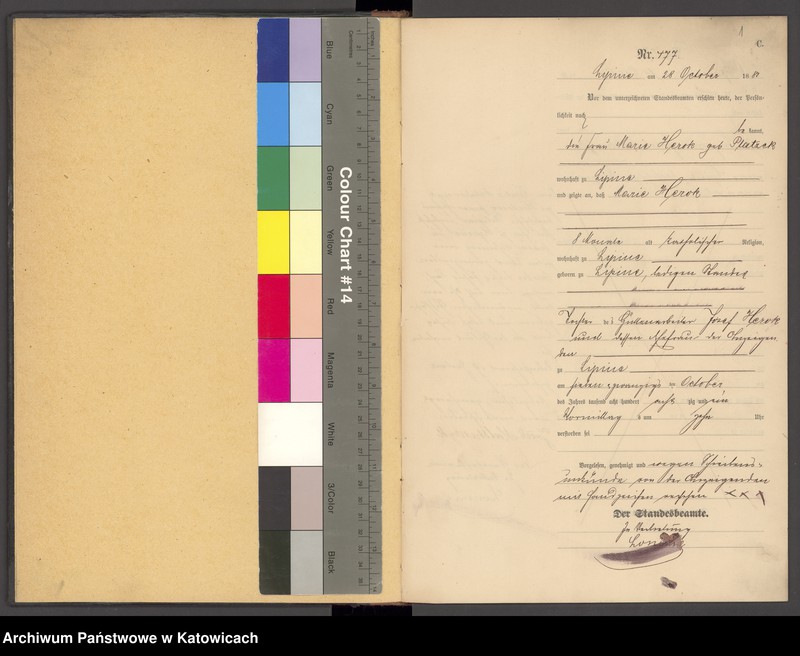 Blue
Cyan
Green
Yellow
Red
Magenta
White
3/Color
Black
Colour Chart #14
Inches
Centimetres
1
C.
Nr. 177.
Lipine am 28 October 18
Vor dem unterzeichneten Standesbeamten erschien heute, der Persön-
lichkeit nach
be kannt,
die Frau Marie Herok geb
wohnhaft zu Lipine
und zeigte an, daß Marie Herok
8 Monate alt katholischer Religion,
wohnhaft zu Lipine
geboren zu Lipine, ledigen Standes
Tochter des Hüttenarbeiter Josef Herok
und dessen Ehefrau der Anzeigen
den
zu Lipine
am October
des Jahres tausend acht hundert acht zig
Vormittag s um zehn Uhr
verstorben sei
Vorgelesen, genehmigt und wegen Schreibens-
unkunde von der Anzeigenden
mit Handzeichen versehen xxx
Der Standesbeamte.
In Vertretung
Archiwum Państwowe w Katowicach